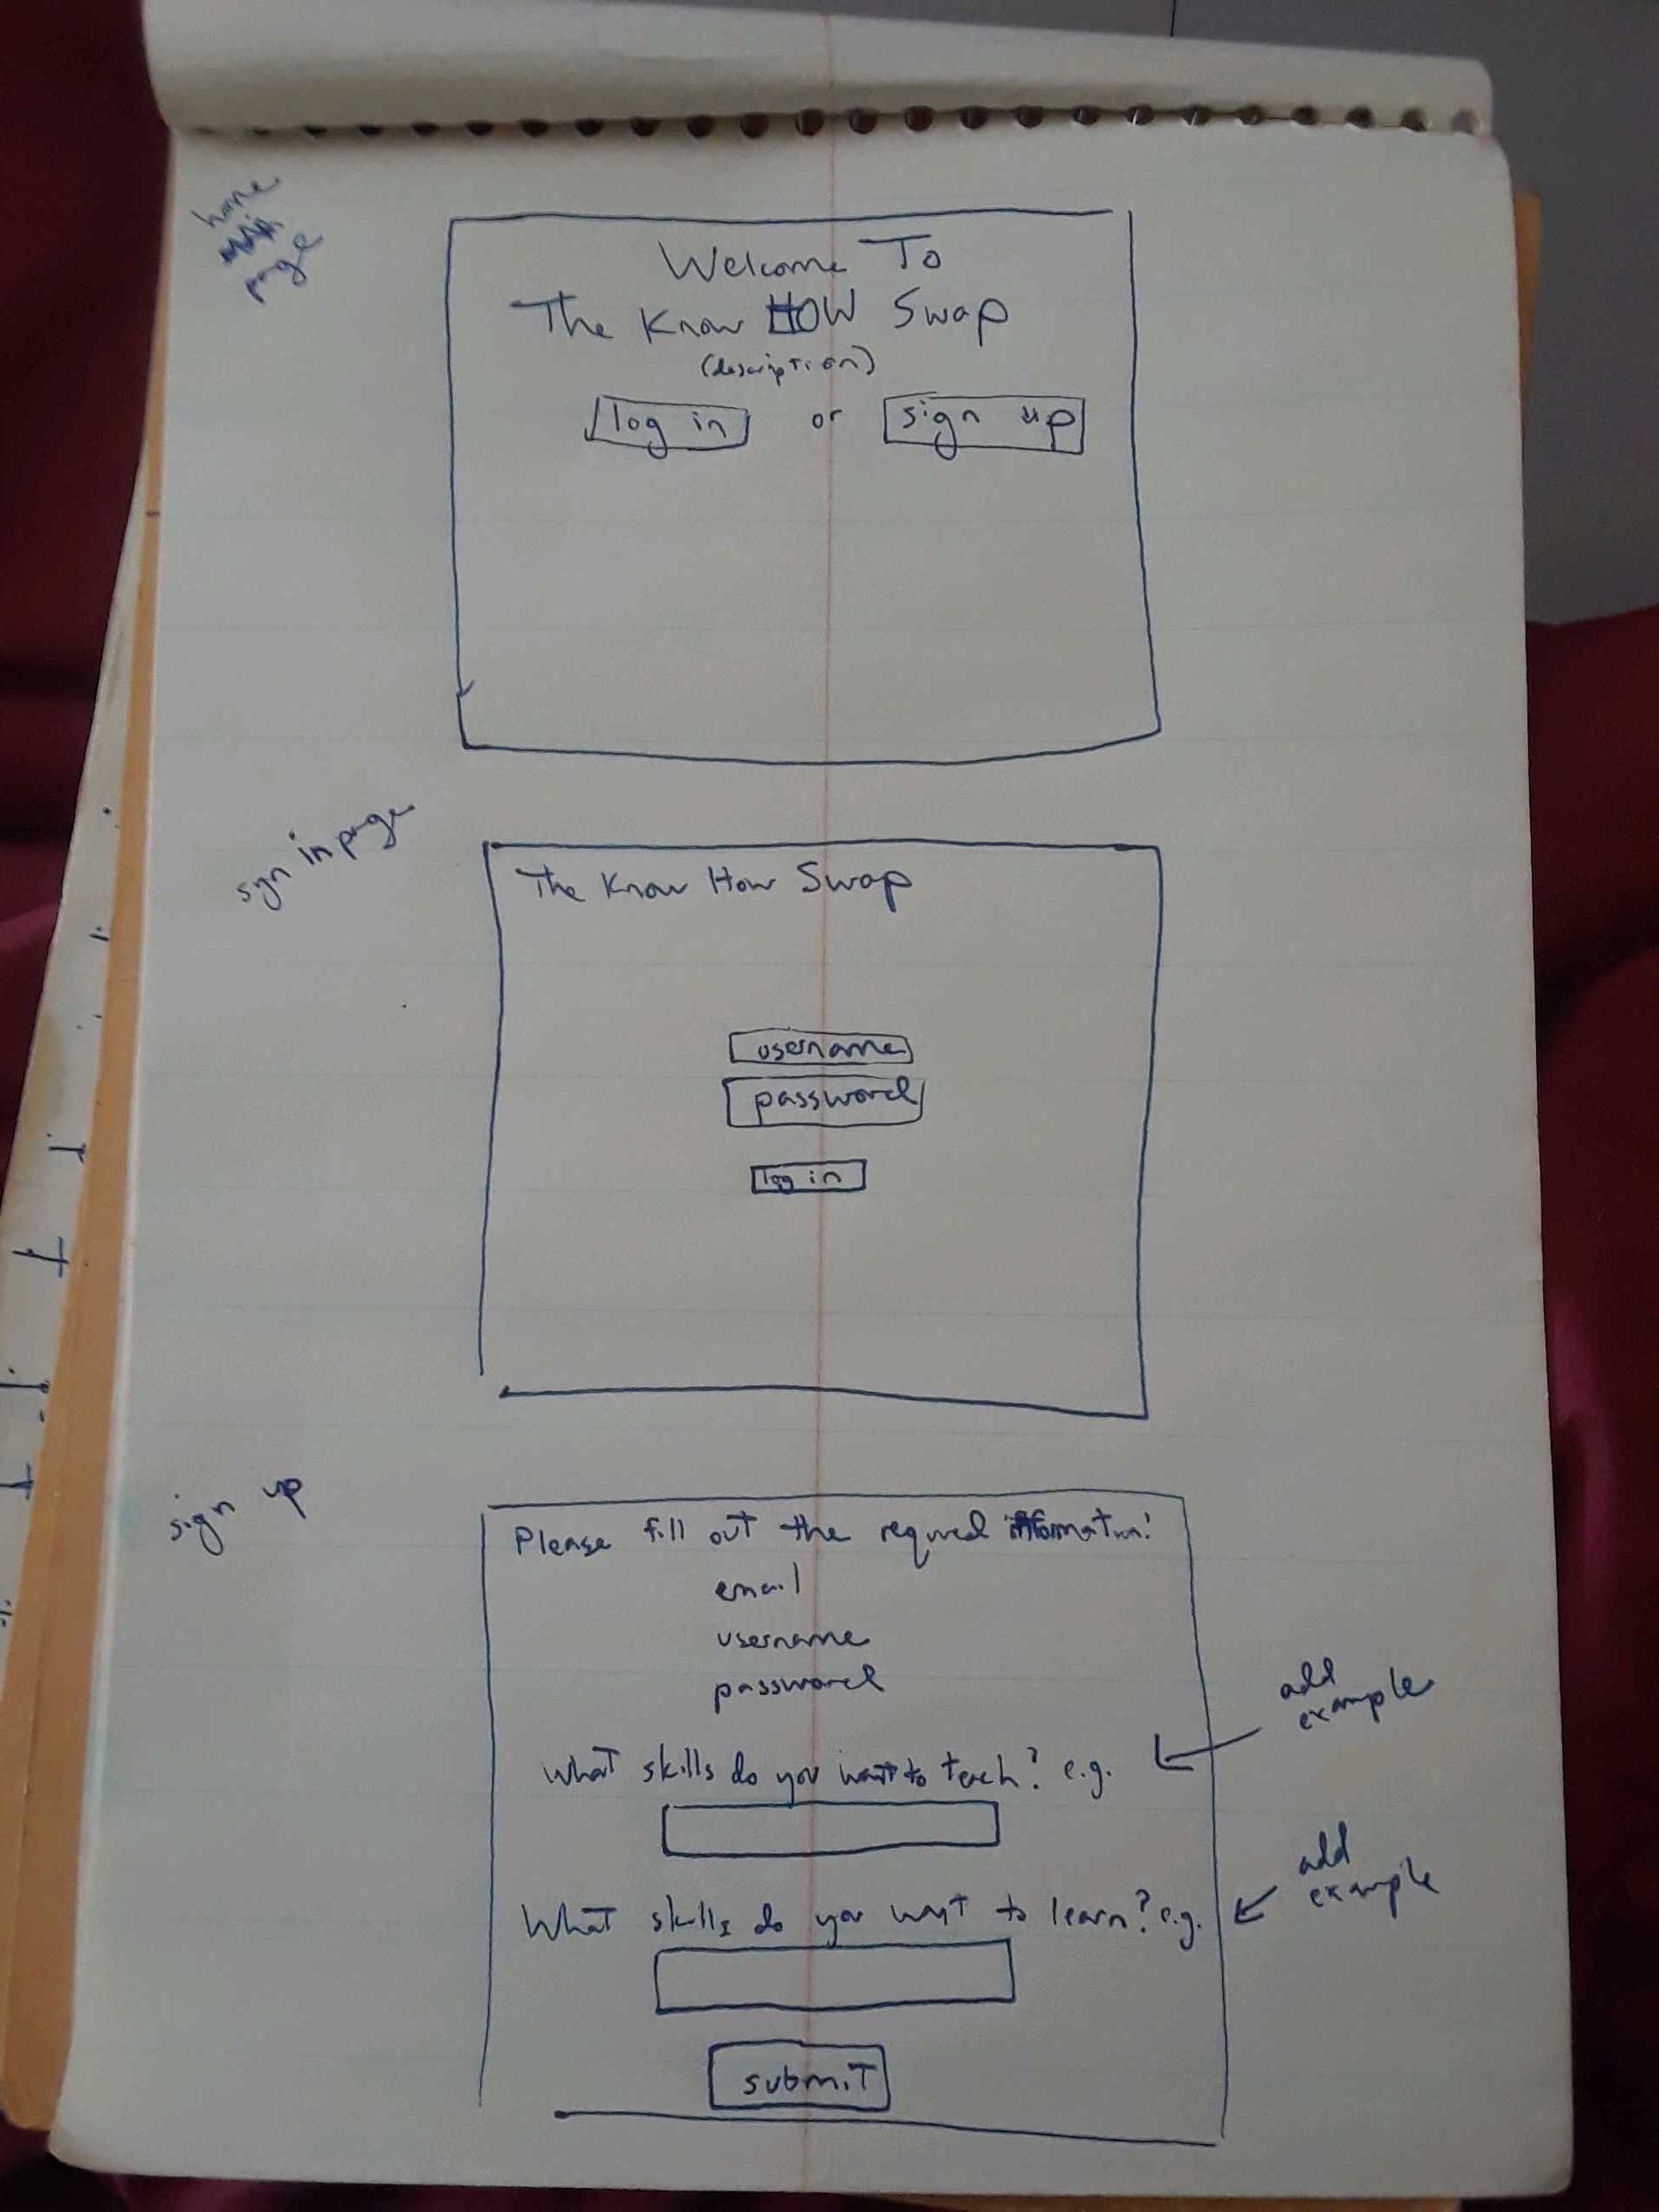 home
page
Welcome To
The Know HOW Swap
(description)
log in or sign up
sign in page
The Know How Swap
username
password
log in
sign up
Please fill out the required information!
email
username
password
What skills do you want to teach? e.g.
add
example
What skills do you want to learn? e.g.
add
example
submit